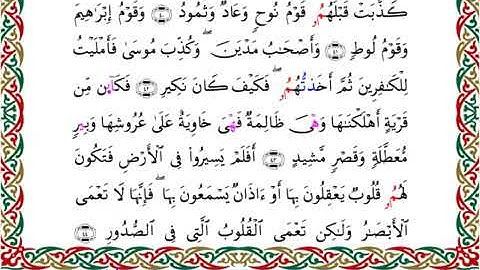 كَذَّبَتْ قَبْلَهُمُۥ قَوْمُ نُوحٍ وَعَادٌ وَثَمُودُ ٤٠ وَقَوْمُ إِبْرَٰهِيمَ
وَقَوْمُ لُوطٍ ٤١ وَأَصْحَٰبُ مَدْيَنَ ۖ وَكُذِّبَ مُوسَىٰ فَأَمْلَيْتُ
لِلْكَٰفِرِينَ ثُمَّ أَخَذتُّهُمُۥ ۖ فَكَيْفَ كَانَ نَكِيرِ ٤٢ فَكَآئِن مِّن
قَرْيَةٍ أَهْلَكْنَٰهَا وَهْىَ ظَالِمَةٌ فَهْىَ خَاوِيَةٌ عَلَىٰ عُرُوشِهَا وَبِيرٍ
مُّعَطَّلَةٍ وَقَصْرٍ مَّشِيدٍ ٤٣ أَفَلَمْ يَسِيرُوا۟ فِى ٱلْأَرْضِ فَتَكُونَ
لَهُمُۥ قُلُوبٌ يَعْقِلُونَ بِهَا أَوْ ءَاذَانٌ يَسْمَعُونَ بِهَا ۖ فَإِنَّهَا لَا تَعْمَى
ٱلْأَبْصَٰرُ وَلَٰكِن تَعْمَى ٱلْقُلُوبُ ٱلَّتِى فِى ٱلصُّدُورِ ٤٤